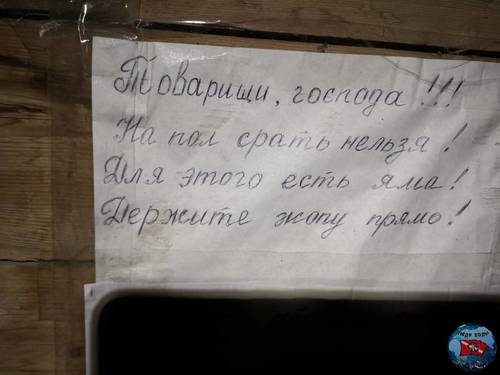 Товарищи, господа!!!
На пол срать нельзя!
Для этого есть яма!
Держите жопу прямо!